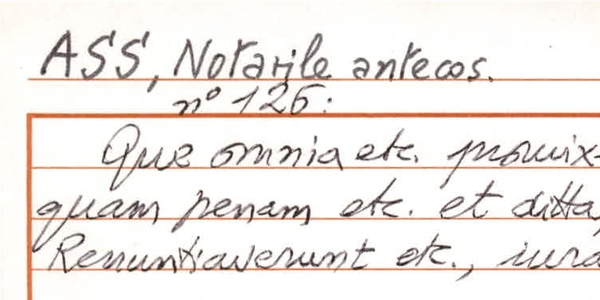 ASS, Notarile antecos.
n° 126:
Que omnia etc. promix-
quam penam etc. et ditta,
Renuntiaverunt etc., iura